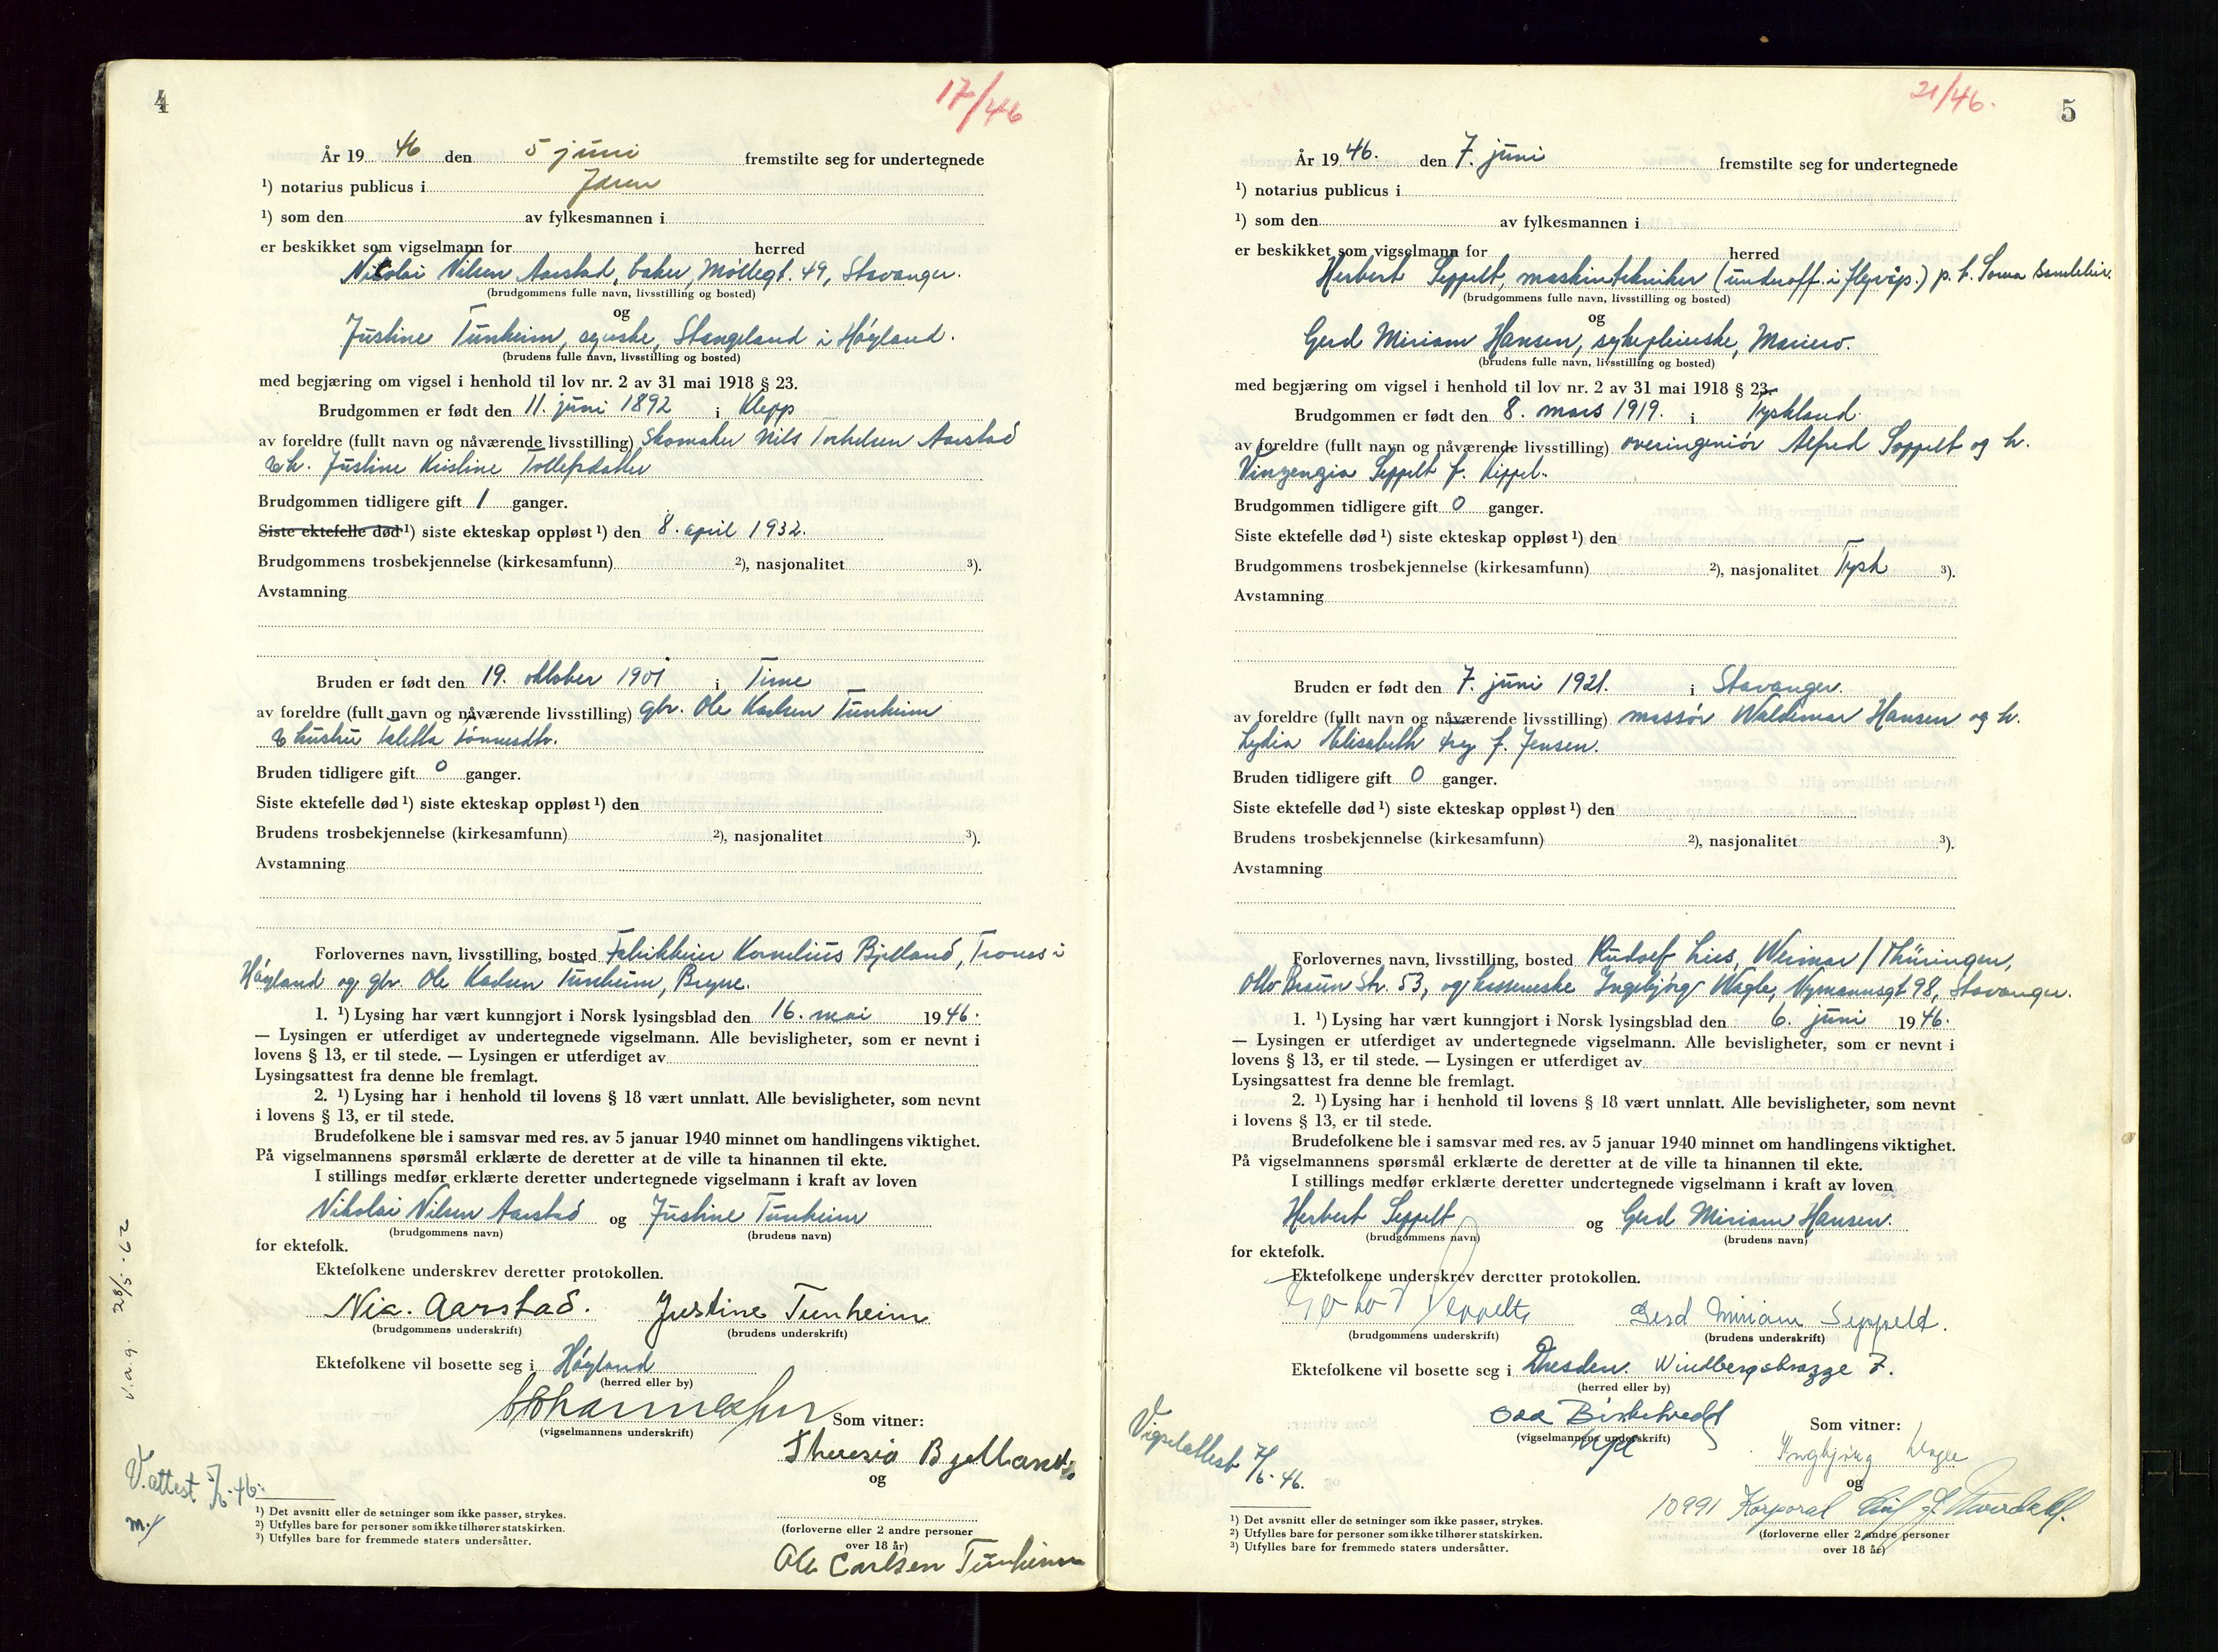 4
17/46
År 19 46 den 5 juni fremstilte seg for undertegnede
¹) notarius publicus i Jæren
¹) som den av fylkesmannen i
er beskikket som vigselmann for herred
Nikolai Nilsen Aarstad, baker, Møllegt. 49, Stavanger.
(brudgommens fulle navn, livsstilling og bosted)
og
Justine Tunheim, syerske, Stangeland i Høyland.
(brudens fulle navn, livsstilling og bosted)
med begjæring om vigsel i henhold til lov nr. 2 av 31 mai 1918 § 23.
Brudgommen er født den 11. juni 1892 i Klepp
av foreldre (fullt navn og nåværende livsstilling) Skomaker Nils Torkelsen Aarstad
& h. Justine Kristine Tollefsdatter
Brudgommen tidligere gift 1 ganger.
Siste ektefelle død ¹) siste ekteskap oppløst ¹) den 8. april 1932.
Brudgommens trosbekjennelse (kirkesamfunn) ²), nasjonalitet ³).
Avstamning
Bruden er født den 19. oktober 1901 i Time
av foreldre (fullt navn og nåværende livsstilling) gbr. Ole Karlsen Tunheim
& hustru Taletta Tønnesdtr.
Bruden tidligere gift 0 ganger.
Siste ektefelle død ¹) siste ekteskap oppløst ¹) den
Brudens trosbekjennelse (kirkesamfunn) ²), nasjonalitet ³).
Avstamning
Forlovernes navn, livsstilling, bosted Fabrikkeier Kornelius Bjelland, Trones i
Høyland og gbr. Ole Karlsen Tunheim, Bryne.
1. ¹) Lysing har vært kunngjort i Norsk lysingsblad den 16. mai 1946.
— Lysingen er utferdiget av undertegnede vigselmann. Alle bevisligheter, som er nevnt i
lovens § 13, er til stede. — Lysingen er utferdiget av
Lysingsattest fra denne ble fremlagt.
2. ¹) Lysing har i henhold til lovens § 18 vært unnlatt. Alle bevisligheter, som nevnt
i lovens § 13, er til stede.
Brudefolkene ble i samsvar med res. av 5 januar 1940 minnet om handlingens viktighet.
På vigselmannens spørsmål erklærte de deretter at de ville ta hinannen til ekte.
I stillings medfør erklærte deretter undertegnede vigselmann i kraft av loven
Nikolai Nilsen Aarstad og Justine Tunheim
(brudgommens navn) (brudens navn)
for ektefolk.
Ektefolkene underskrev deretter protokollen.
Nic. Aarstad. Justine Tunheim
(brudgommens underskrift) (brudens underskrift)
Ektefolkene vil bosette seg i Høyland
(herred eller by)
Som vitner:
(vigselmannens underskrift)
Theresia Bjelland
og
(forloverne eller 2 andre personer
over 18 år)
Ole Carlsen Tunheim
v.a.g. 28/5-62
V.attest 5/6-46.
¹) Det avsnitt eller de setninger som ikke passer, strykes.
²) Utfylles bare for personer som ikke tilhører statskirken.
³) Utfylles bare for fremmede staters undersåtter.
21/46.
5
År 19 46. den 7. juni fremstilte seg for undertegnede
¹) notarius publicus i
¹) som den av fylkesmannen i
er beskikket som vigselmann for herred
Herbert Seppelt, maskintekniker (underoff. i flyvåp.) p.t. Soma Samleleir.
(brudgommens fulle navn, livsstilling og bosted)
og
Gerd Miriam Hansen, sykepleierske, Mariero.
(brudens fulle navn, livsstilling og bosted)
med begjæring om vigsel i henhold til lov nr. 2 av 31 mai 1918 § 23.
Brudgommen er født den 8. mars 1919. i Tyskland.
av foreldre (fullt navn og nåværende livsstilling) overingeniør Alfred Seppelt og h.
Vinzenzia Seppelt f. Kippel.
Brudgommen tidligere gift 0 ganger.
Siste ektefelle død ¹) siste ekteskap oppløst ¹) den
Brudgommens trosbekjennelse (kirkesamfunn) ²), nasjonalitet Tysk ³).
Avstamning
Bruden er født den 7. juni 1921. i Stavanger.
av foreldre (fullt navn og nåværende livsstilling) massør Waldemar Hansen og h.
Lydia Elisabeth f. Jensen.
Bruden tidligere gift 0 ganger.
Siste ektefelle død ¹) siste ekteskap oppløst ¹) den
Brudens trosbekjennelse (kirkesamfunn) ²), nasjonalitet ³).
Avstamning
Forlovernes navn, livsstilling, bosted Rudolf Lies, Weimar / Thüringen,
Otto Braun Str. 53, og kassererske Ingebjørg Wagle, Nymannsgt 98, Stavanger.
1. ¹) Lysing har vært kunngjort i Norsk lysingsblad den 6. juni 1946.
— Lysingen er utferdiget av undertegnede vigselmann. Alle bevisligheter, som er nevnt i
lovens § 13, er til stede. — Lysingen er utferdiget av
Lysingsattest fra denne ble fremlagt.
2. ¹) Lysing har i henhold til lovens § 18 vært unnlatt. Alle bevisligheter, som nevnt
i lovens § 13, er til stede.
Brudefolkene ble i samsvar med res. av 5 januar 1940 minnet om handlingens viktighet.
På vigselmannens spørsmål erklærte de deretter at de ville ta hinannen til ekte.
I stillings medfør erklærte deretter undertegnede vigselmann i kraft av loven
Herbert Seppelt og Gerd Miriam Hansen.
(brudgommens navn) (brudens navn)
for ektefolk.
Ektefolkene underskrev deretter protokollen.
Seppelt Gerd Miriam Seppelt.
(brudgommens underskrift) (brudens underskrift)
Ektefolkene vil bosette seg i Dresden. Windbergstrasse 7.
(herred eller by)
Som vitner:
(vigselmannens underskrift)
Ingebjørg Wagle
og
10991 Korporal
(forloverne eller 2 andre personer
over 18 år)
Vigselattest 7/6-46.
¹) Det avsnitt eller de setninger som ikke passer, strykes.
²) Utfylles bare for personer som ikke tilhører statskirken.
³) Utfylles bare for fremmede staters undersåtter.